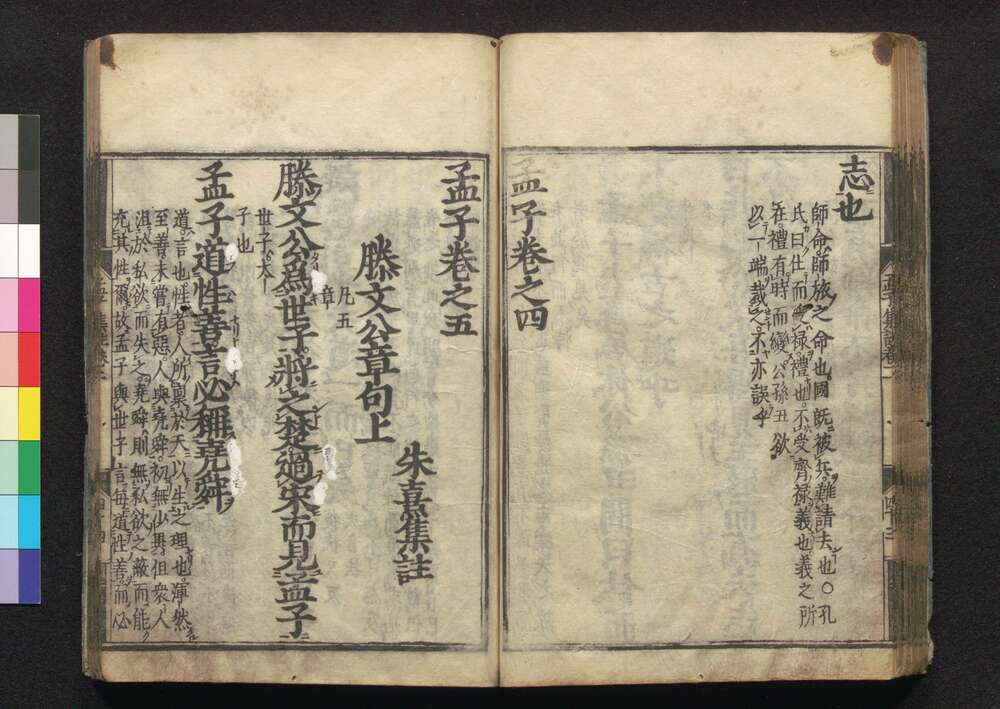 志也
師命師旅之命也國既被兵難請去也〇孔
氏曰仕而受禄禮也不受齊禄義也義之所
在禮有時而變公孫丑欲
以一端裁之不亦誤乎
孟子卷之四
孟子卷之五
滕文公章句上
凡五
章
朱熹集註
滕文公為世子將之楚過宋而見孟子
世子太
子也
孟子道性善言必稱堯舜
道言也性者人所稟於天以生之理也渾然
至善未嘗有惡人與堯舜初無少異但衆人
汨於私欲而失之堯舜則無私欲之蔽而能
充其性爾故孟子與世子言每道性善而必